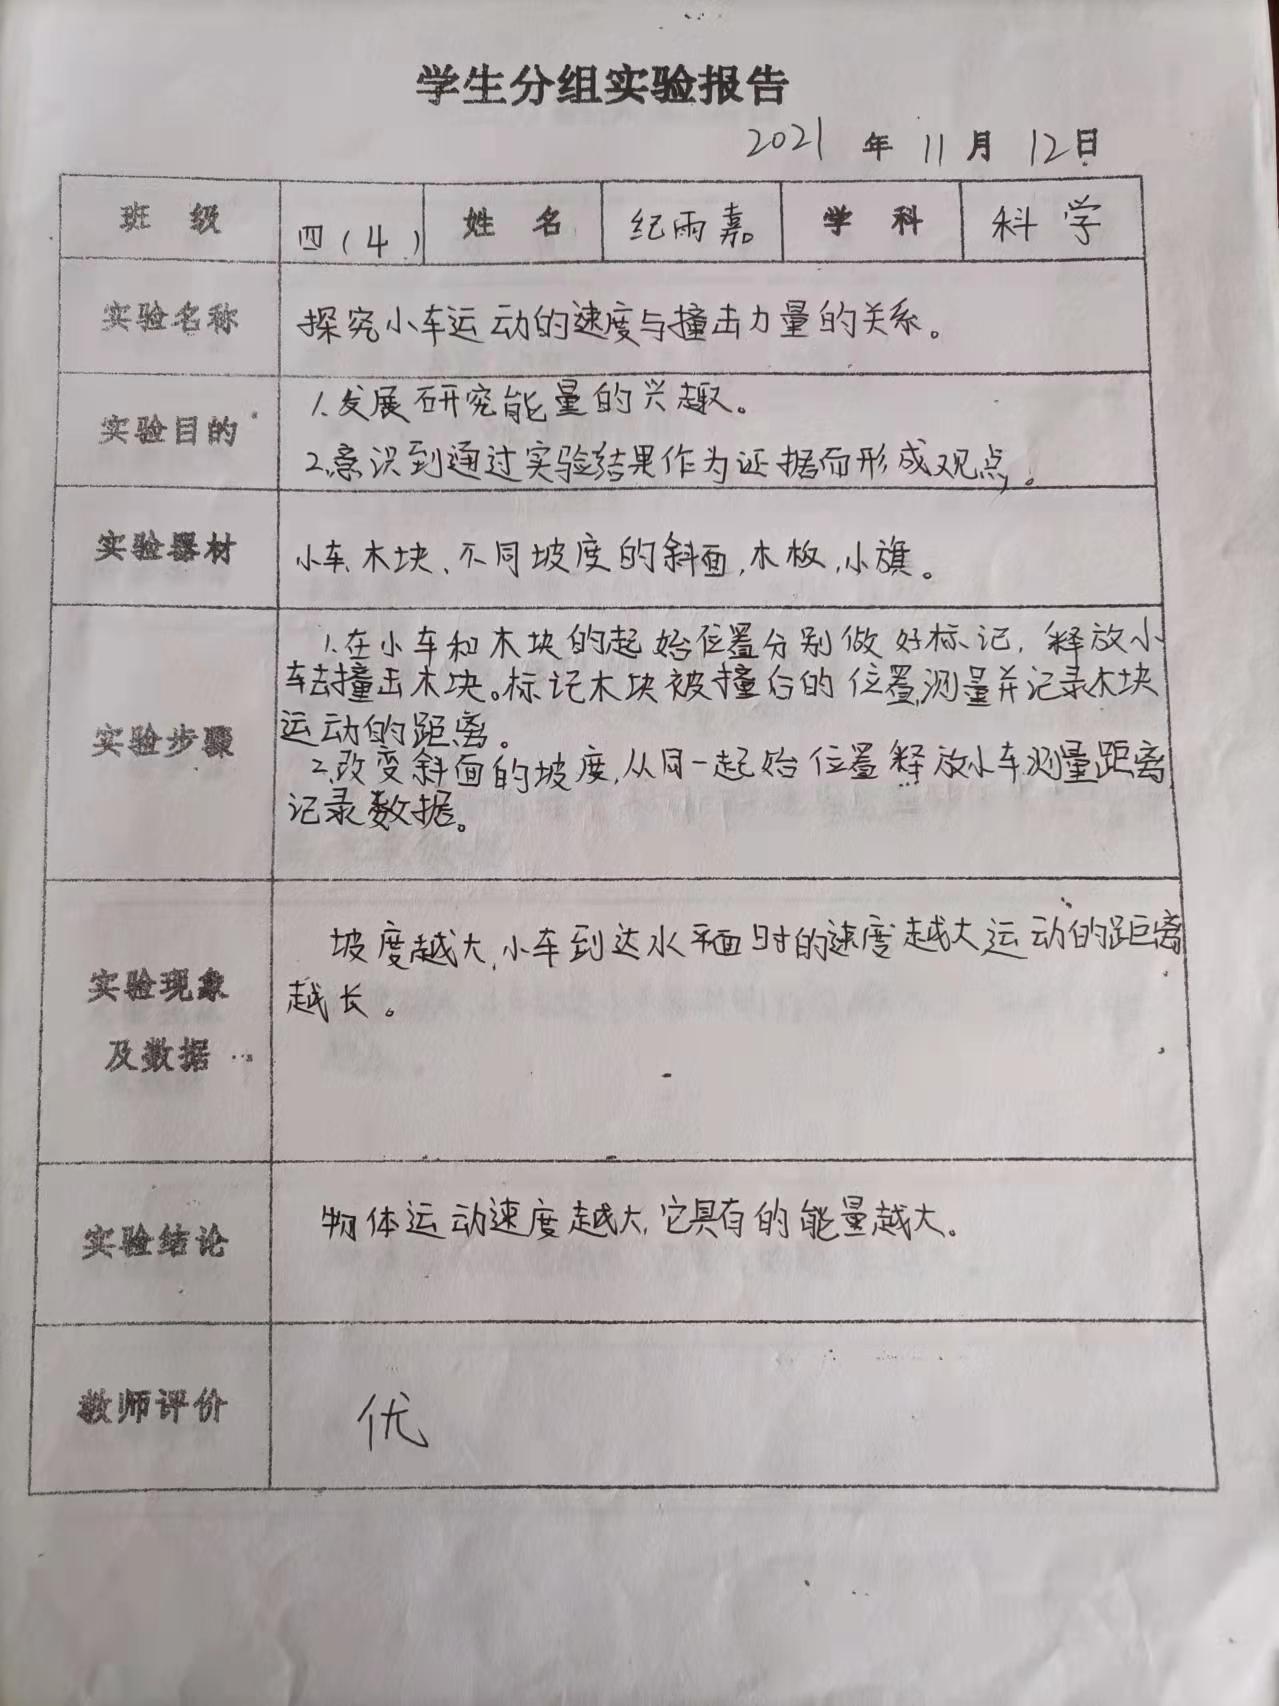 学生分组实验报告
2021 年 11 月 12日
班 级 四(4) 姓 名 纪雨嘉 学 科 科学
实验名称 探究小车运动的速度与撞击力量的关系。
实验目的 1.发展研究能量的兴趣。
2.意识到通过实验结果作为证据而形成观点。
实验器材 小车、木块、不同坡度的斜面,木板,小旗。
实验步骤
1.在小车和木块的起始位置分别做好标记,释放小
车去撞击木块。标记木块被撞后的位置,测量并记录木块
运动的距离。
2.改变斜面的坡度,从同一起始位置释放小车,测量距离
记录数据。
实验现象
及数据
坡度越大,小车到达水平面时的速度越大运动的距离
越长。
实验结论 物体运动速度越大,它具有的能量越大。
教师评价 优